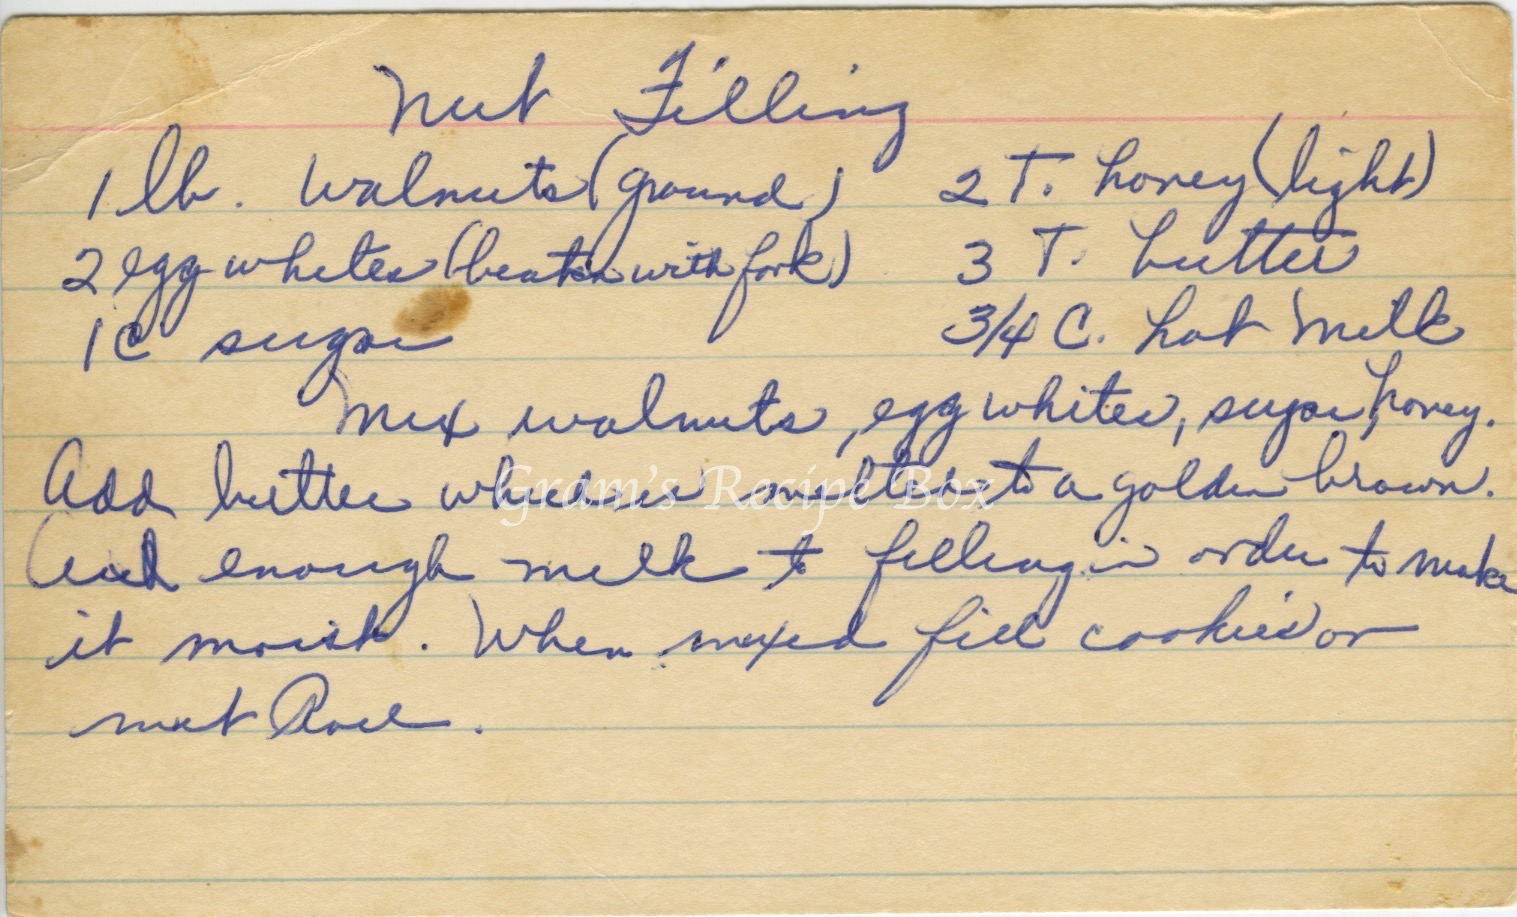 Nut Filling
1 lb. walnuts (ground) 2 T. honey (light)
2 egg whites (beaten with fork) 3 T. butter
1 C sugar 3/4 C. hot milk
Mix walnuts, egg whites, sugar, honey.
Add butter which is melted to a golden brown.
Add enough milk to filling in order to make
it moist. When mixed fill cookies or
nut Roll.
Gram's Recipe Box